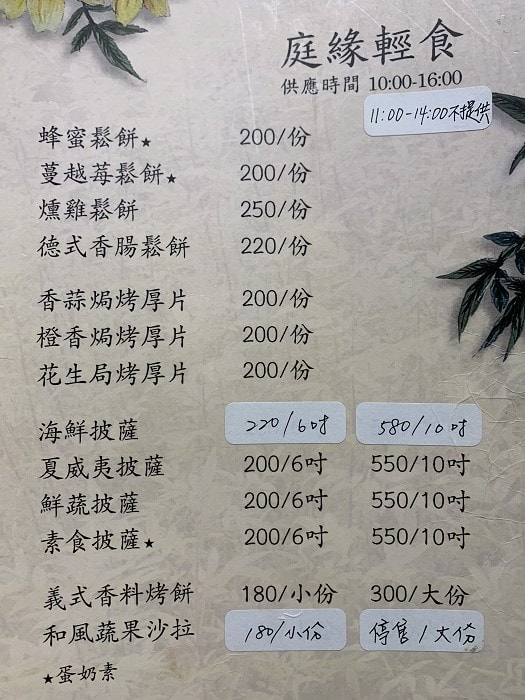 庭緣輕食
供應時間 10:00-16:00
11:00-14:00不提供
蜂蜜鬆餅★ 200/份
蔓越莓鬆餅★ 200/份
燻雞鬆餅 250/份
德式香腸鬆餅 220/份
香蒜焗烤厚片 200/份
橙香焗烤厚片 200/份
花生局烤厚片 200/份
海鮮披薩 220/6吋 580/10吋
夏威夷披薩 200/6吋 550/10吋
鮮蔬披薩 200/6吋 550/10吋
素食披薩★ 200/6吋 550/10吋
義式香料烤餅 180/小份 300/大份
和風蔬果沙拉 180/小份 停售/大份
★蛋奶素